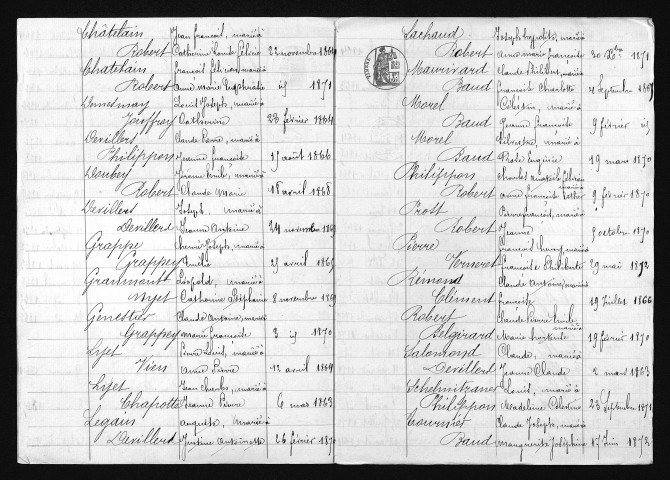 Châtelain Jean francois, marié à
Robert Catherine Louise 22 novembre 1869
Chatelain francois marié à
Robert Anne Marie 1871
Demesmay Louis Joseph, marié à
Jouffroy Catherine 23 février 1864
Devillers Claude Pierre, marié à
Philippon Jeanne francoise 15 août 1866
Doubey marié à
Robert Claude Marie 18 avril 1868
Devillers Joseph, marié à
Devillers Jeanne Antoine 24 novembre
Grappe Joseph, marié à
Grappey Amélie 25 avril 1865
Grammont Léopold, marié à
Myet Catherine Stéphanie 8 novembre 1869
Genestier Claude Antoine, marié à
Grappey Marie francoise 3 id 1870
Lyet Pierre Louis, marié à
Viens Anne Pierre 12 avril 1864
Lyet Jean Charles, marié à
Chapotte Jeanne Pierre 6 mars 1863
Legain Auguste, marié à
Devillers Justine Antoinette 26 février
Lachaud Joseph hypolite, marié à
Robert Anne marie francoise 30 Xbre 1871
Mauvivard Claude Philibert, marié à
Baud francoise Charlotte 4 Septembre
Morel Célestin, marié à
Baud Jeanne francoise 9 février id
Morel Silvestre, marié à
Baud Rose Eugénie 19 mars 1870
Philippon Charles marié à
Robert Anne francoise Esther 9 février 1870
Prost marié à
Robert Jeanne 3 octobre 1870
Pierre francois henry, marié à
Verneret francoise Philiberte 29 mai 1872
Rémond Claude Antoine, marié à
Clément francoise 19 Juillet 1866
Robert Claude Pierre marié à
Belgirard Marie hortense 19 février 1870
Salomond Claude, marié à
Devillers Jeanne Claude 2 mars 1863
Louis, marié à
Philippon Madeleine Célestine 23 Septembre 1871
Tournier Claude Joseph, marié à
Baud Marguerite Joséphine 17 Juin 1872